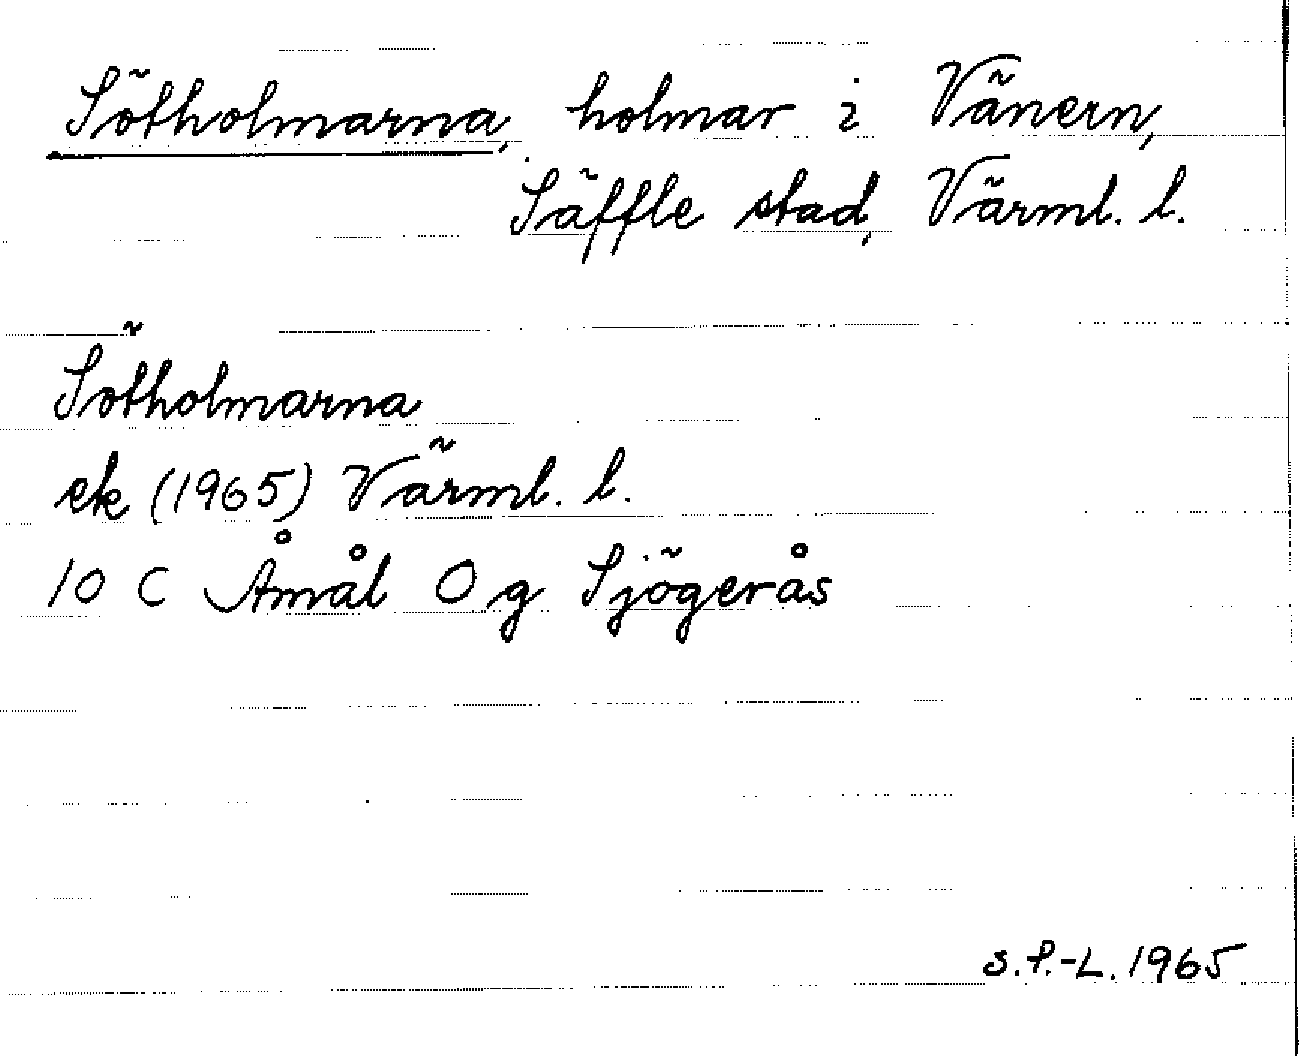 Sötholmarna, holmar i Vänern,
Säffle stad, Värml. l.
Sötholmarna
ek (1965) Värml. l.
10 C Åmål O g Sjögerås
S.P.-L. 1965